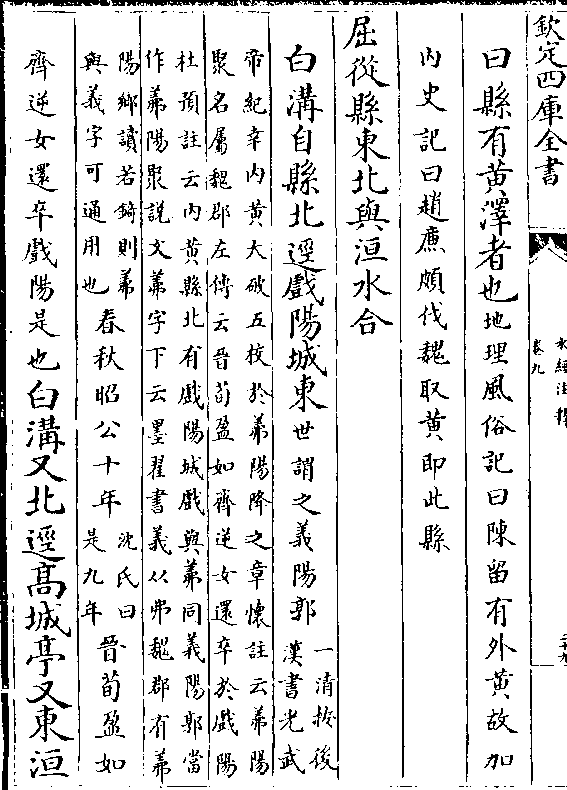 欽定四庫全書
水經注釋
卷九
二十九
曰縣有黄澤者也地理風俗記曰陳留有外黄故加
内史記曰趙廉頗伐魏取黄即此縣
屈從縣東北與洹水合
白溝自縣北逕戲陽城東世謂之義陽郭
一清按後
漢書光武
帝紀幸内黄大破五校於羛陽降之章懷註云羛陽
聚名屬魏郡左傳云晉荀盈如齊逆女還卒於戲陽
杜預註云内黄縣北有戲陽城戲與羛同義陽郭當
作羛陽聚說文羛字下云墨翟書義从弗魏郡有羛
陽鄉讀若錡則羛
與義字可通用也
春秋昭公十年
沈氏曰
是九年
晉荀盈如
齊逆女還卒戲陽是也白溝又北逕高城亭又東洹